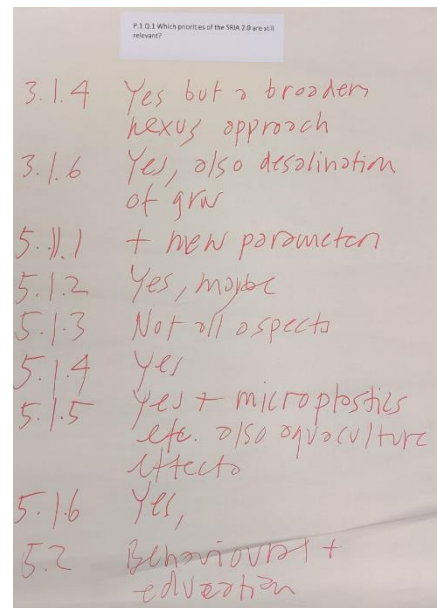 P.3 Q.1 Which priorities of the SRIA 2.0 are still
relevant?
3.1.4 Yes but a broader
nexus approach
3.1.6 Yes, also desalination
of grw
5.1.1 + new parameters
5.1.2 Yes, maybe
5.1.3 Not all aspects
5.1.4 Yes
5.1.5 Yes + microplastics
etc. also aquaculture
effects
5.1.6 Yes,
5.2 Behavioural +
education